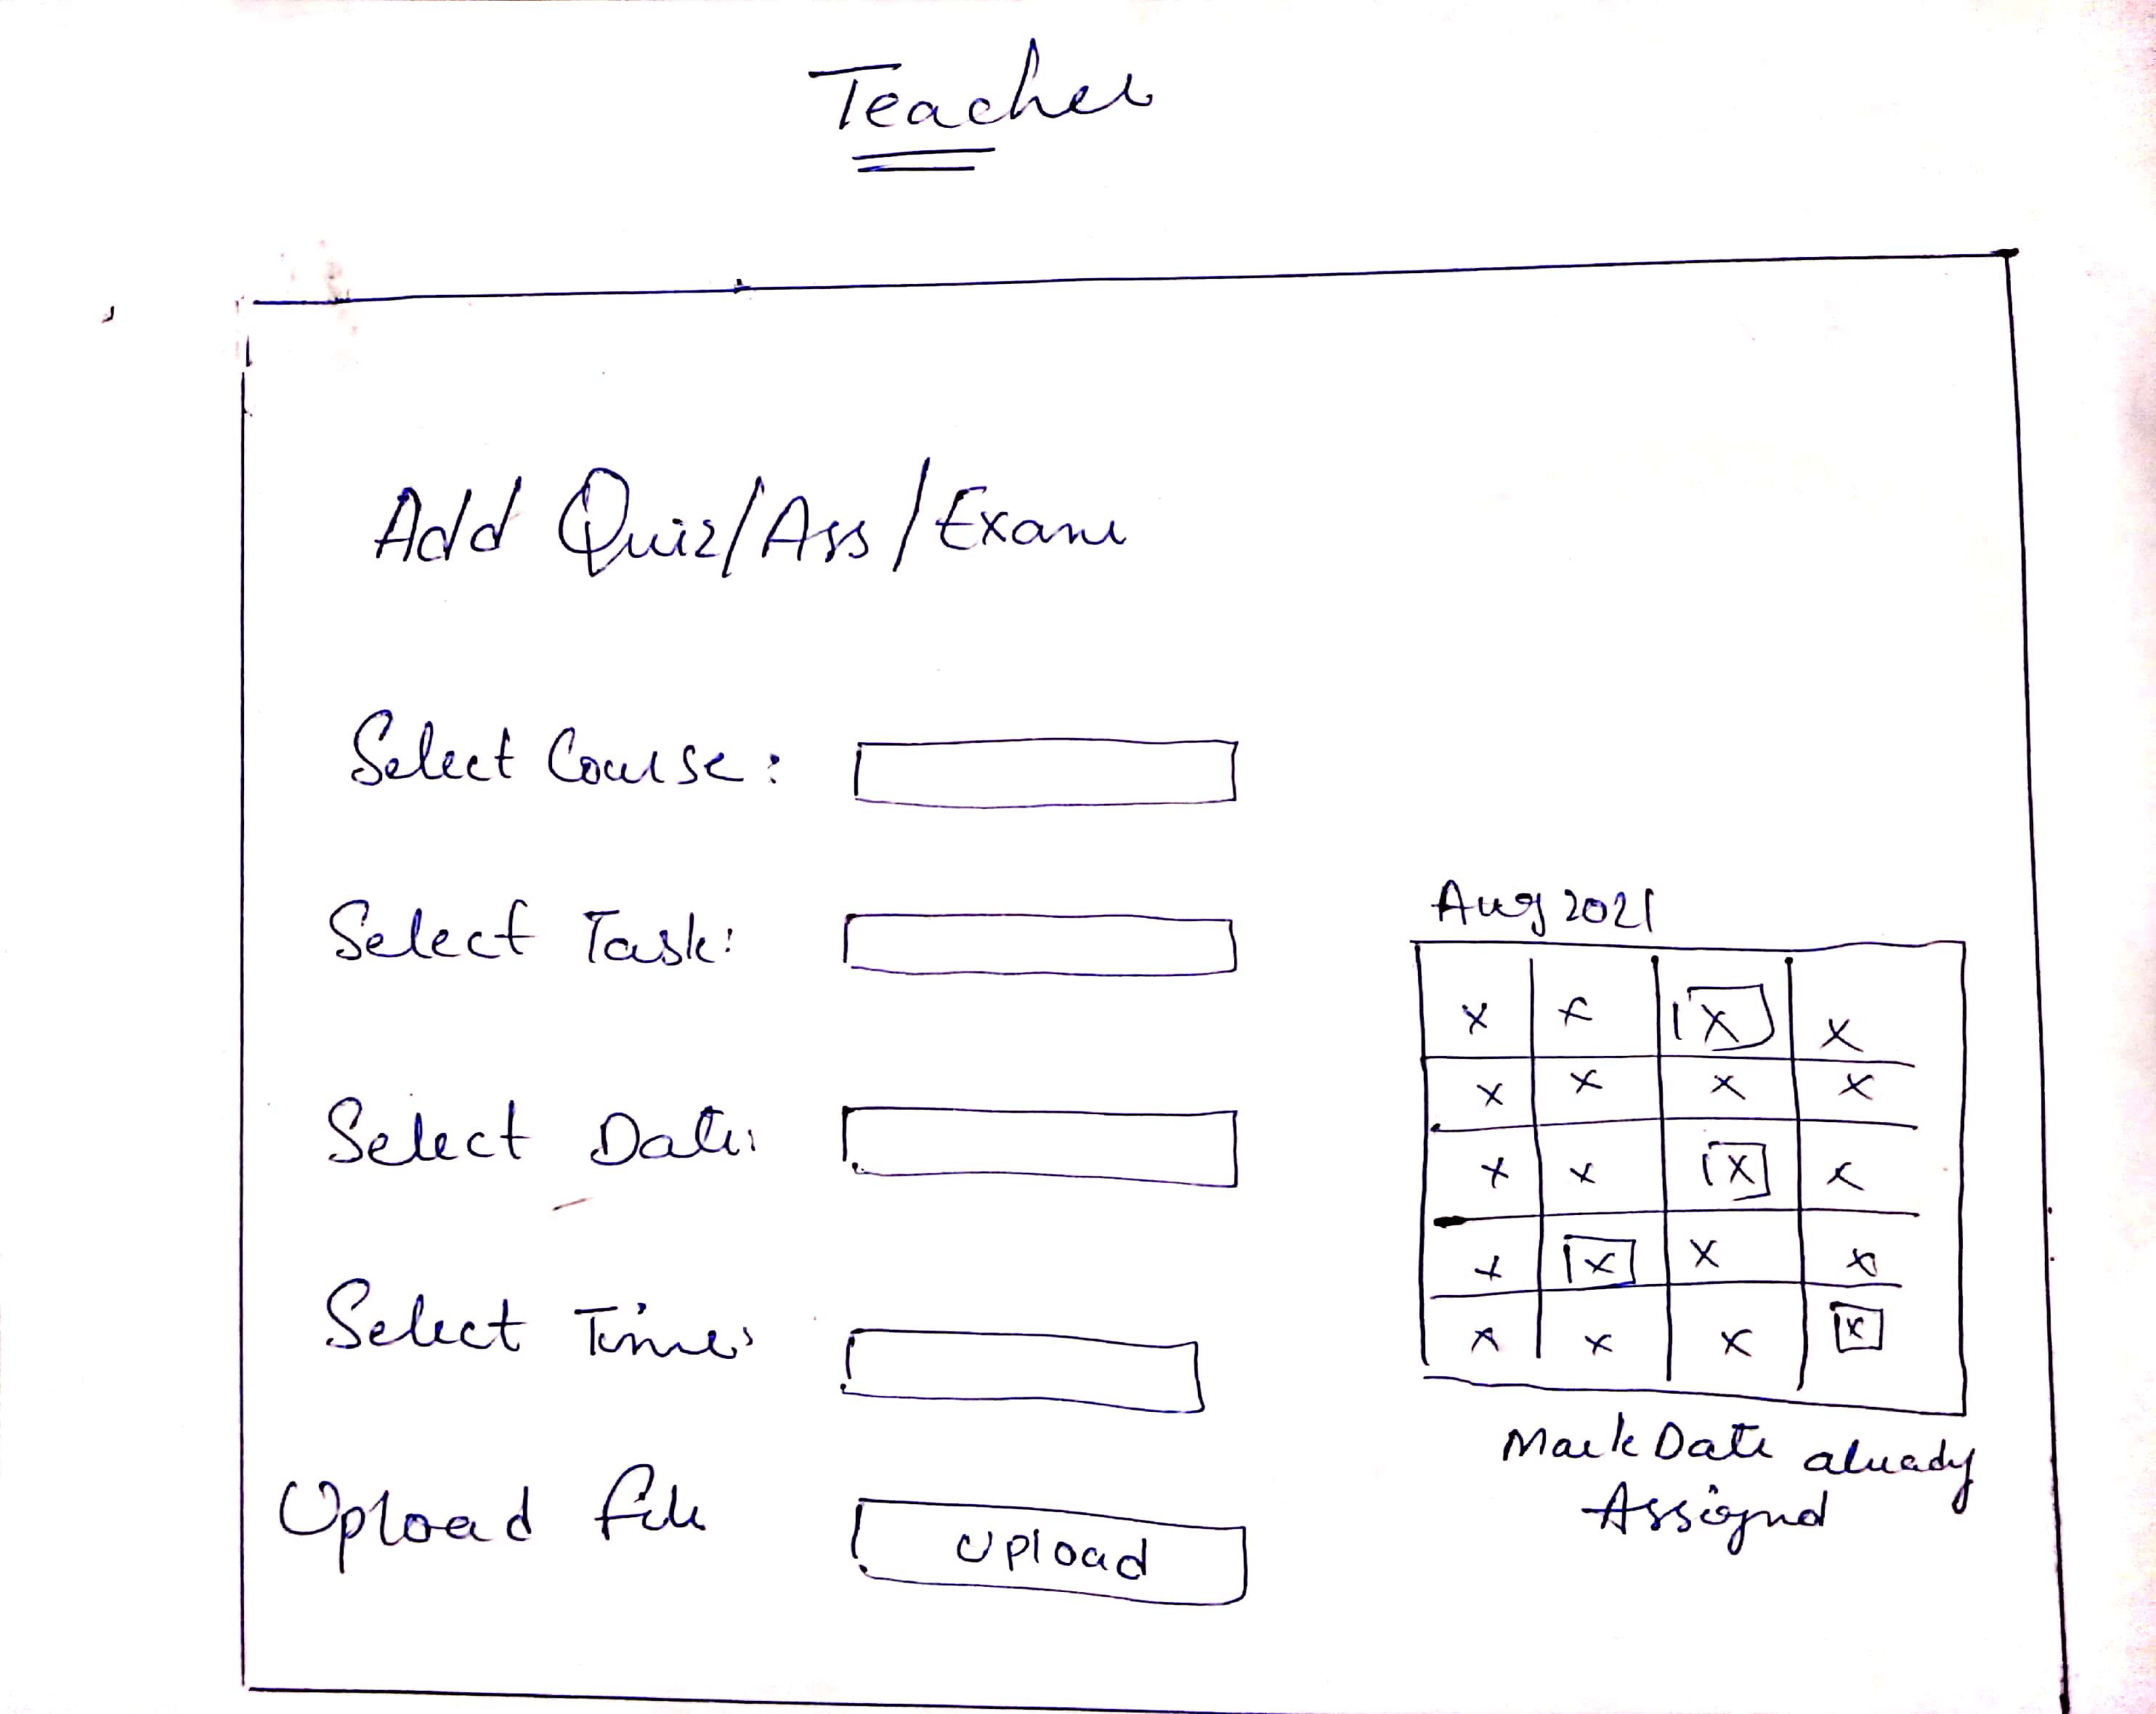 Teacher
Add Quiz/Ass/Exam
Select Course:
Select Task:
Select Date:
Select Time:
Upload file
Upload
Aug 2021
x x x x
x x x x
x x x x
x x x x
x x x x
Mark Date already
Assigned